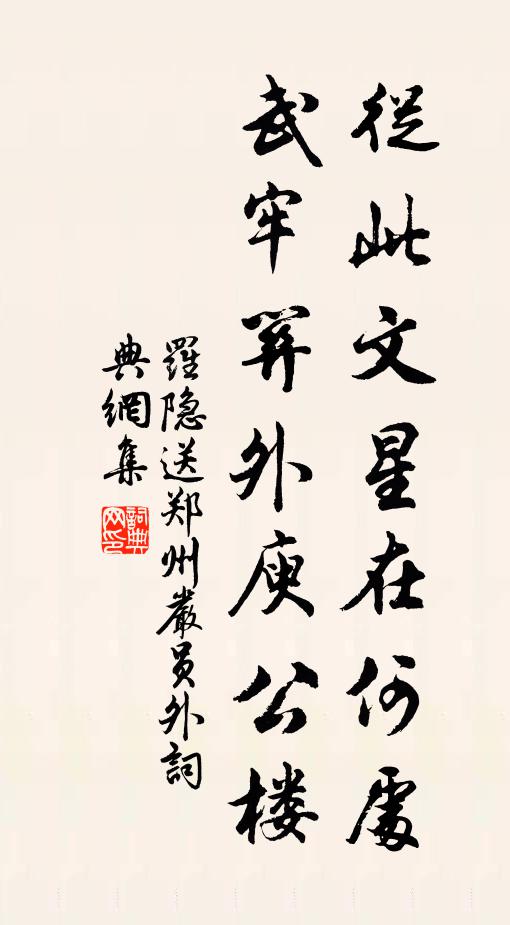 從此文星在何處
武牢關外庾公楼
羅隐送郑州嚴员外詞
典網集
詞典
网印